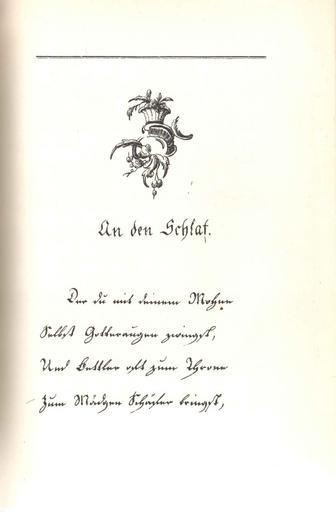 An den Schlaf.
Der du mit deinem Mohne
Selbst Götteraugen zwingst,
Und Bettler oft zum Throne
Zum Mädgen Schäfer bringst,